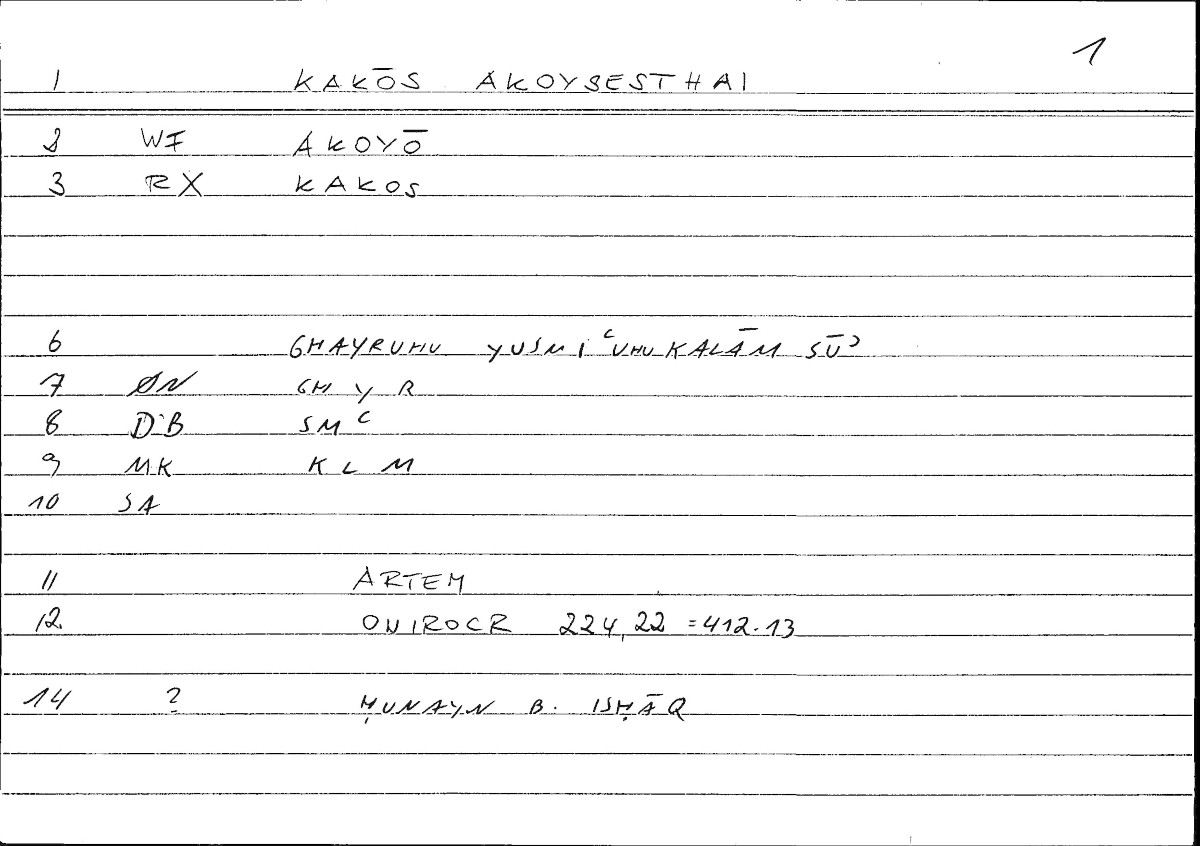 1
1 KAKŌS AKOYSESTHAI
2 WI AKOYŌ
3 RX KAKOS
6 GHAYRUHU YUSMIʿUHU KALĀM SŪʾ
7 ØN GH Y R
8 DB SMʿ
9 MK K L M
10 SA
11 ARTEM
12 ONIROCR 224,22 = 412.13
14 ? ḤUNAYN B. ISḤĀQ